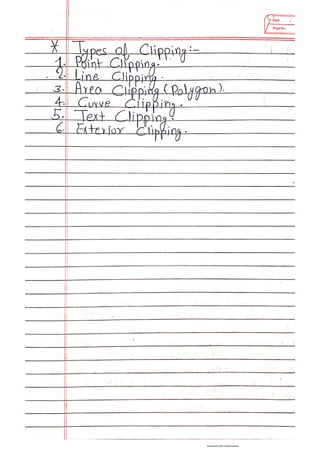 Date
Page No.
* Types of Clipping:-
1. Point Clipping.
2. Line Clipping.
3. Area Clipping (Polygon).
4. Curve Clipping.
5. Text Clipping.
6. Exterior Clipping.
Scanned with CamScanner